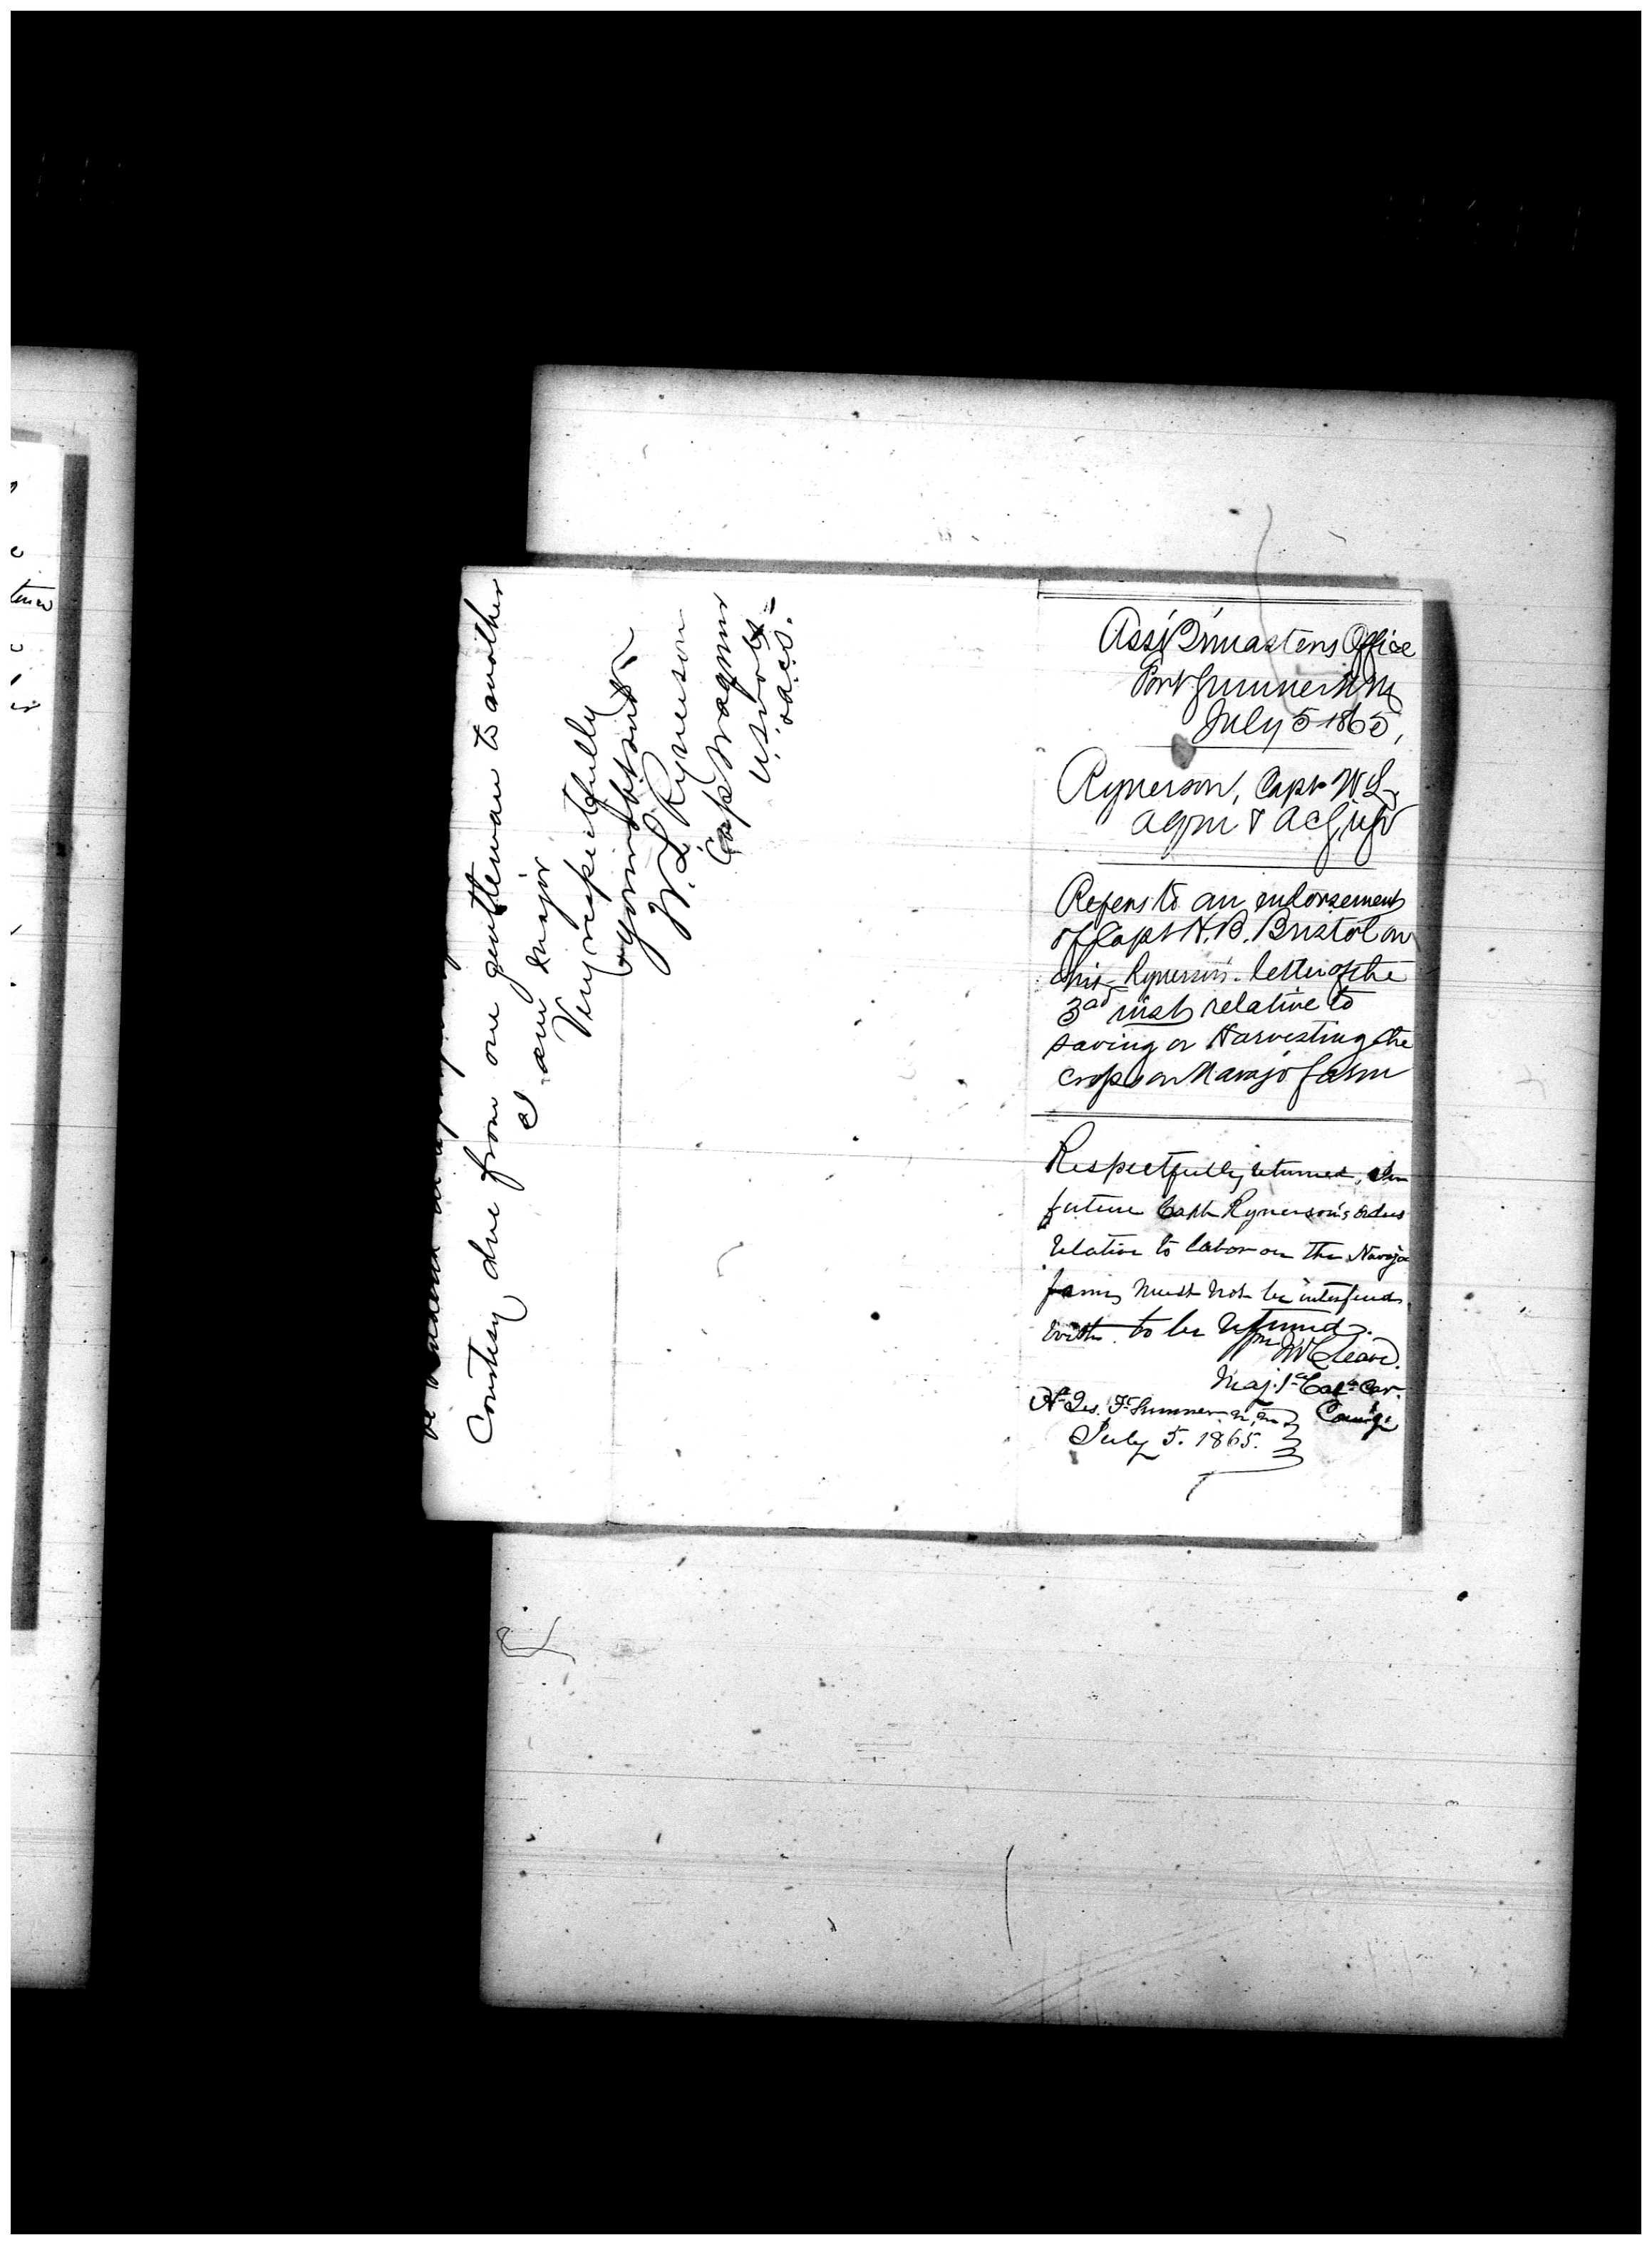 Courtesy due from one gentleman to another
I am Major
Very respectfully
your obt servt
W. L. Rynerson
Capt & aqm
U.S. Vols =
aacs. =
Asst Qrmasters Office
Fort Sumner N M
July 5 1865,
Rynerson, Capt W L.
aqm &
Refers to an endorsement
of Capt H. B. Bristol on
his - Rynerson's - letter of the
3rd inst relative to
saving or Harvesting the
crops on Navajo farm
Respectfully returned, In
future Capt Rynerson's orders
relative to labor on the Navajo
farm, must not be interfered
with. to be returned.
Wm McCleave.
Maj. 1st Cal. Cav.
Comd'g.
Hd Qrs. Ft Sumner. N. M.
July 5. 1865.